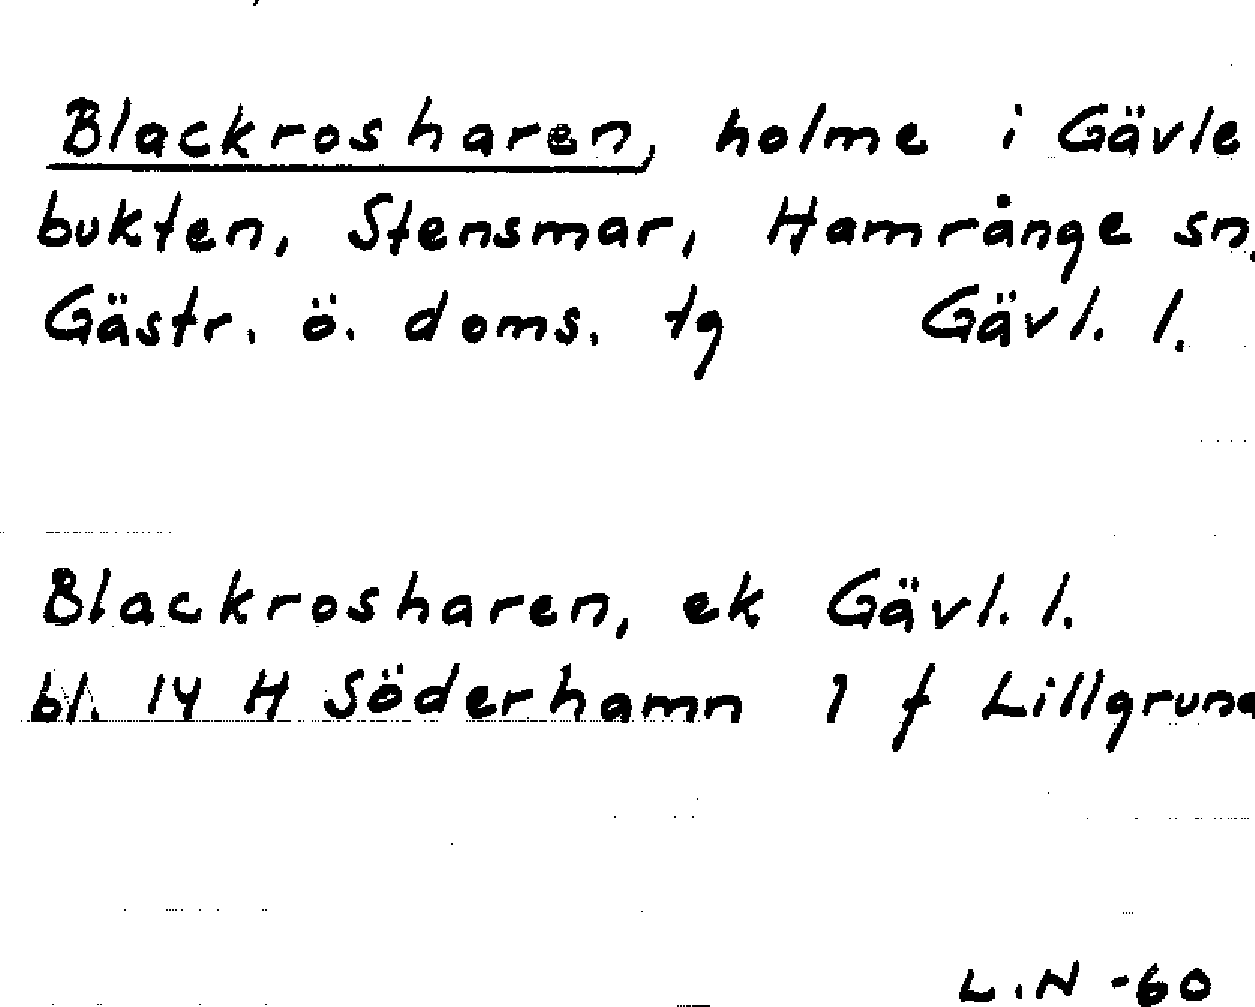 Blackrosharen, holme i Gävle
bukten, Stensmar, Hamrånge sn,
Gästr. ö. doms. tg Gävl. l.
Blackrosharen, ek Gävl. l.
bl. 14 H Söderhamn 1 f Lillgrund
L.N -60